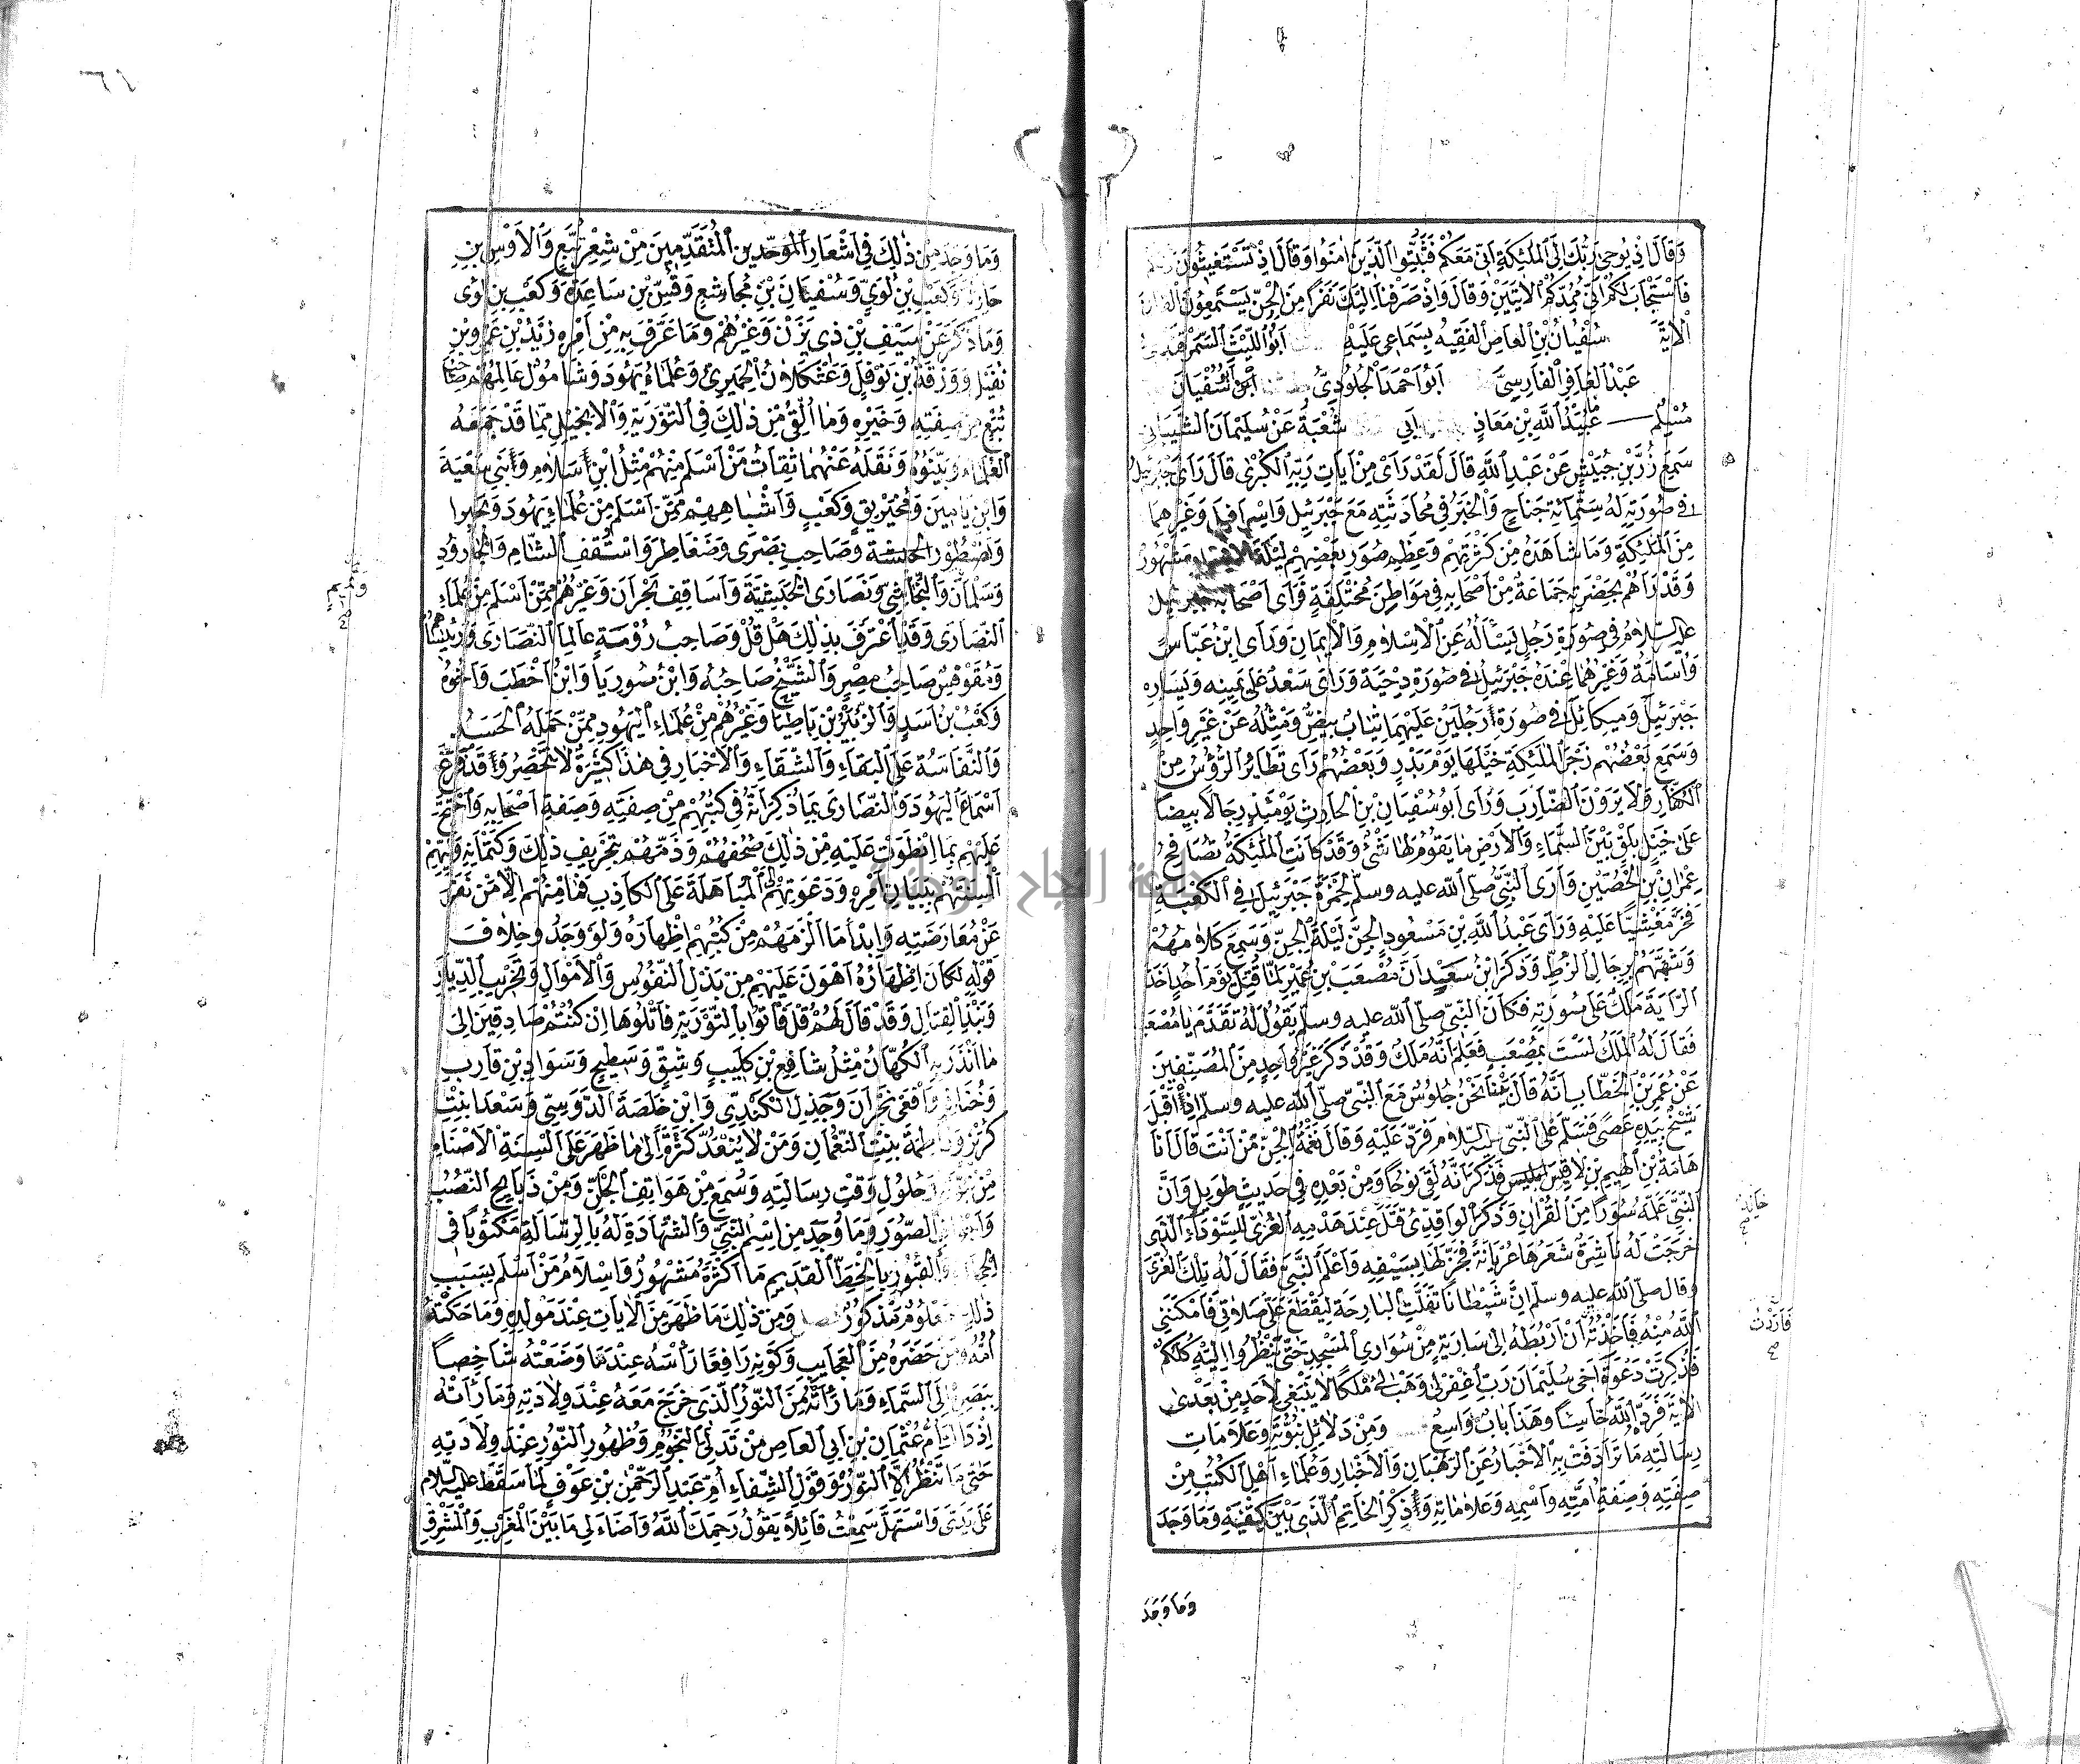 وَقَالَ اِذْ يُوحِي رَبُّكَ اِلَى الْمَلٰئِكَةِ اَنِّي مَعَكُمْ فَثَبِّتُوا الَّذِينَ اٰمَنُوا وَقَالَ اِذْ تَسْتَغِيثُونَ رَبَّكُمْ
فَاسْتَجَابَ لَكُمْ اَنِّي مُمِدُّكُمْ الْاٰيَتَيْنِ وَقَالَ وَاِذْ صَرَفْنَا اِلَيْكَ نَفَرًا مِنَ الْجِنِّ يَسْتَمِعُونَ الْقُرْاٰنَ
الْاٰيَةَ سُفْيَانُ بْنُ الْعَاصِ الْفَقِيهُ بِسَمَاعِي عَلَيْهِ اَبُو اللَّيْثِ السَّمَرْقَنْدِيُّ
عَبْدُ الْغَافِرِ الْفَارِسِيُّ اَبُو اَحْمَدَ الْجُلُودِيُّ ابْنُ سُفْيَانَ
مُسْلِمٌ عُبَيْدُ اللّٰهِ بْنُ مَعَاذٍ اَبِي شُعْبَةُ عَنْ سُلَيْمَانَ الشَّيْبَانِيِّ
سَمِعَ زِرَّ بْنَ حُبَيْشٍ عَنْ عَبْدِ اللّٰهِ قَالَ لَقَدْ رَاٰى مِنْ اٰيَاتِ رَبِّهِ الْكُبْرٰى قَالَ رَاٰى جَبْرَئِيلَ
فِي صُورَتِهِ لَهُ سِتُّمِائَةِ جَنَاحٍ وَالْخَبَرُ فِي مُحَادَثَتِهِ مَعَ جَبْرَئِيلَ وَاِسْرَافِيلَ وَغَيْرِهِمَا
مِنَ الْمَلٰئِكَةِ وَمَا شَاهَدَهُ مِنْ كَثْرَتِهِمْ وَعِظَمِ صُوَرِ بَعْضِهِمْ لَيْلَةَ الْاِسْرَاءِ مَشْهُورٌ
وَقَدْ رَاٰهُمْ بِحَضْرَتِهِ جَمَاعَةٌ مِنْ اَصْحَابِهِ فِي مَوَاطِنَ مُخْتَلِفَةٍ فَرَاٰى اَصْحَابُهُ جَبْرَئِيلَ
عليه السلام فِي صُورَةِ رَجُلٍ يَسْاَلُهُ عَنِ الْاِسْلَامِ وَالْاِيمَانِ وَرَاٰى ابْنُ عَبَّاسٍ
وَاُسَامَةُ وَغَيْرُهُمَا عِنْدَهُ جَبْرَئِيلَ فِي صُورَةِ دِحْيَةَ وَرَاٰى سَعْدٌ عَلَى يَمِينِهِ وَيَسَارِهِ
جَبْرَئِيلَ وَمِيكَائِلَ فِي صُورَةِ رَجُلَيْنِ عَلَيْهِمَا ثِيَابٌ بِيضٌ وَمِثْلُهُ عَنْ غَيْرِ وَاحِدٍ
وَسَمِعَ بَعْضُهُمْ زَجْرَ الْمَلٰئِكَةِ خَيْلَهَا يَوْمَ بَدْرٍ وَبَعْضُهُمْ رَاٰى تَطَايُرَ الرُّؤُسِ مِنَ
الْكُفَّارِ وَلَا يَرَوْنَ الضَّارِبَ وَرَاٰى اَبُو سُفْيَانَ بْنُ الْحَارِثِ يَوْمَئِذٍ رِجَالًا بِيضًا
عَلَى خَيْلٍ بَلْقٍ بَيْنَ السَّمَاءِ وَالْاَرْضِ مَا يَقُومُ لَهَا شَئٌ وَقَدْ كَانَتِ الْمَلٰئِكَةُ تُصَافِحُ
عِمْرَانَ بْنَ الْحُصَيْنِ وَاَرَى النَّبِيُّ صلى الله عليه وسلم لِحَمْزَةَ جَبْرَئِيلَ فِي الْكَعْبَةِ
فَخَرَّ مَغْشِيًّا عَلَيْهِ وَرَاٰى عَبْدُ اللّٰهِ بْنُ مَسْعُودٍ الْجِنَّ لَيْلَةَ الْجِنِّ وَسَمِعَ كَلَامَهُمْ
وَشَبَّهَهُمْ بِرِجَالِ الزُّطِّ وَذَكَرَ ابْنُ سَعْدٍ اَنَّ مُصْعَبَ بْنَ عُمَيْرٍ لَمَّا قُتِلَ يَوْمَ اُحُدٍ اَخَذَ
الرَّايَةَ مَلَكٌ عَلَى صُورَتِهِ فَكَانَ النَّبِيُّ صلى الله عليه وسلم يَقُولُ لَهُ تَقَدَّمْ يَا مُصْعَبُ
فَقَالَ لَهُ الْمَلَكُ لَسْتُ بِمُصْعَبٍ فَعَلِمَ اَنَّهُ مَلَكٌ وَقَدْ ذَكَرَ غَيْرُ وَاحِدٍ مِنَ الْمُصَنِّفِينَ
عَنْ عُمَرَ بْنِ الْخَطَّابِ اَنَّهُ قَالَ بَيْنَا نَحْنُ جُلُوسٌ مَعَ النَّبِيِّ صلى الله عليه وسلم اِذْ اَقْبَلَ
شَيْخٌ بِيَدِهِ عَصًى فَسَلَّمَ عَلَى النَّبِيِّ عليه السلام فَرَدَّ عَلَيْهِ وَقَالَ نَغْمَةُ الْجِنِّ مَنْ اَنْتَ قَالَ اَنَا
هَامَةُ بْنُ الْهِيمِ بْنِ لَاقِسَ بْنِ اِبْلِيسَ فَذَكَرَ اَنَّهُ لَقِيَ نُوحًا وَمَنْ بَعْدَهُ فِي حَدِيثٍ طَوِيلٍ وَاَنَّ
النَّبِيَّ عَلَّمَهُ سُوَرًا مِنَ الْقُرْاٰنِ وَذَكَرَ الْوَاقِدِيُّ قَتْلَ عِنْدَ هَدْمِهِ الْعُزَّى لِلسَّوْدَاءِ الَّتِي
خَرَجَتْ لَهُ نَاشِرَةً شَعَرَهَا عُرْيَانَةً فَجَزَّلَهَا بِسَيْفِهِ وَاَعْلَمَ النَّبِيَّ فَقَالَ لَهُ تِلْكَ الْعُزَّى
وقال صلى الله عليه وسلم اِنَّ شَيْطَانًا تَفَلَّتَ الْبَارِحَةَ لِيَقْطَعَ عَلَيَّ صَلَاتِي فَاَمْكَنَنِي
اللّٰهُ مِنْهُ فَاَخَذْتُهُ اَنْ اَرْبِطَهُ اِلَى سَارِيَةٍ مِنْ سَوَارِي الْمَسْجِدِ حَتَّى تَنْظُرُوا اِلَيْهِ كُلُّكُمْ
فَذَكَرْتُ دَعْوَةَ اَخِي سُلَيْمَانَ رَبِّ اغْفِرْ لِي وَهَبْ لِي مُلْكًا لَا يَنْبَغِي لِاَحَدٍ مِنْ بَعْدِي
الْاٰيَةَ فَرَدَّهُ اللّٰهُ خَاسِئًا وَهَذَا بَابٌ وَاسِعٌ وَمِنْ دَلَائِلِ نُبُوَّتِهِ وَعَلَامَاتِ
رِسَالَتِهِ مَا تَرَادَفَتْ بِهِ الْاَخْبَارُ عَنِ الرُّهْبَانِ وَالْاَحْبَارِ وَعُلَمَاءِ اَهْلِ الْكُتُبِ مِنْ
صِفَتِهِ وَصِفَةِ اُمَّتِهِ وَاسْمِهِ وَعَلَامَاتِهِ وَذِكْرِ الْخَاتِمِ الَّذِي بَيْنَ كَتِفَيْهِ وَمَا وَجَدَ
وما وجد
خَالِدٍ
صح
فَاَرَدْتُ
صح
٦١
وَمَا وَجَدَ مِنْ ذٰلِكَ فِي اَشْعَارِ الْمُوَحِّدِينَ الْمُتَقَدِّمِينَ مِنْ شِعْرِ تُبَّعٍ وَالْاَوْسِ بْنِ
حَارِثَةَ وَكَعْبِ بْنِ لُوَيٍّ وَسُفْيَانَ بْنِ مُجَاشِعٍ وَقُسِّ بْنِ سَاعِدَةَ وَكَعْبِ بْنِ لُوَى
وَمَا ذُكِرَ عَنْ سَيْفِ بْنِ ذِي يَزَنَ وَغَيْرُهُمْ وَمَا عَرَّفَ بِهِ مِنْ اَمْرِهِ زَيْدُ بْنُ عَمْرِو بْنِ
نُفَيْلٍ وَوَرَقَةُ بْنُ نَوْفَلٍ وَعَثْكَلَانُ الْحِمْيَرِيُّ وَعُلَمَاءُ يَهُودَ وَشَامُولُ عَالِمُهُمْ صَاحِبُ
تُبَّعٍ مِنْ صِفَتِهِ وَخَبَرِهِ وَمَا اُلْقِيَ مِنْ ذٰلِكَ فِي التَّوْرٰيةِ وَالْاِنْجِيلِ مِمَّا قَدْ جَمَعَهُ
الْعُلَمَاءُ وَبَيَّنُوهُ وَنَقَلَهُ عَنْهُمَا ثِقَاتُ مَنْ اَسْلَمَ مِنْهُمْ مِثْلُ ابْنِ سَلَامٍ وَابْنَيْ سَعْيَةَ
وَابْنِ يَامِينَ وَمُخَيْرِيقٍ وَكَعْبٍ وَاَشْبَاهِهِمْ مِمَّنْ اَسْلَمَ مِنْ عُلَمَاءِ يَهُودَ وَبَحِيرَا
وَنَصْطُورِ الْحَبَشَةِ وَصَاحِبِ بُصْرَى وَضَغَاطِرَ وَاُسْقُفِ الشَّامِ وَالْجَارُودِ
وَسَلْمَانَ وَالنَّجَاشِيِّ وَنَصَارَى الْحَبَشَةِ وَاَسَاقِفِ نَجْرَانَ وَغَيْرِهِمْ مِمَّنْ اَسْلَمَ مِنْ عُلَمَاءِ
النَّصَارَى وَقَدِ اعْتَرَفَ بِذٰلِكَ هِرَقْلُ وَصَاحِبُ رُوْمَةٍ عَالِمَا النَّصَارَى وَرَئِيسَاهُمْ
وَمُقَوْقِسُ صَاحِبُ مِصْرٍ وَالشَّيْخُ صَاحِبُهُ وَابْنُ صُورِيَا وَابْنُ اَخْطَبَ وَاَخُوهُ
وَكَعْبُ بْنُ اَسَدٍ وَالزُّبَيْرُ بْنُ بَاطِيَا وَغَيْرُهُمْ مِنْ عُلَمَاءِ الْيَهُودِ مِمَّنْ حَمَلَهُ الْحَسَدُ
وَالنَّفَاسَةُ عَلَى الْبَقَاءِ وَالشَّقَاءِ وَالْاَخْبَارُ فِي هٰذَا كَثِيرَةٌ لَا تَنْحَصِرُ وَقَدْ قَرَّعَ
اَسْمَاعَ الْيَهُودَ وَالنَّصَارَى بِمَا ذَكَرَ اَنَّهُ فِي كُتُبِهِمْ مِنْ صِفَتِهِ وَصِفَةِ اَصْحَابِهِ وَاحْتَجَّ
عَلَيْهِمْ بِمَا انْطَوَتْ عَلَيْهِ مِنْ ذٰلِكَ صُحُفُهُمْ وَذَمَّهُمْ بِتَحْرِيفِ ذٰلِكَ وَكِتْمَانِهِ وَلَيِّهِمْ
اَلْسِنَتَهُمْ بِبَيَانِ اَمْرِهِ وَدَعْوَتِهِمْ اِلَى الْمُبَاهَلَةِ عَلَى الْكَاذِبِ فَمَا مِنْهُمْ اِلَّا مَنْ نَفَرَ
عَنْ مُعَارَضَتِهِ وَاِبْدَاءِ مَا اَلْزَمَهُمْ مِنْ كُتُبِهِمْ اِظْهَارَهُ وَلَوْ وَجَدُوا خِلَافَ
قَوْلِهِ لَكَانَ اِظْهَارُهُ اَهْوَنَ عَلَيْهِمْ مِنْ بَذْلِ النُّفُوسِ وَالْاَمْوَالِ وَتَخْرِيبِ الدِّيَارِ
وَنَبْذِ الْقِتَالِ وَقَدْ قَالَ لَهُمْ قُلْ فَاْتُوا بِالتَّوْرٰيةِ فَاتْلُوهَا اِنْ كُنْتُمْ صَادِقِينَ اِلَى
مَا اَنْذَرَ بِهِ الْكُهَّانُ مِثْلُ شَافِعِ بْنِ كُلَيْبٍ وَشِقٍّ وَسَطِيحٍ وَسَوَادِ بْنِ قَارِبٍ
وَخُنَافِرٍ وَاَفْعَى نَجْرَانَ وَجَذْلِ الْكِنْدِيِّ وَابْنِ خَلَصَةَ الدَّوْسِيِّ وَسَعْدَا بِنْتِ
كُرَيْزٍ وَفَاطِمَةَ بِنْتِ النُّعْمَانِ وَمَنْ لَا يَنْعَدُّ كَثْرَةً اِلَى مَا ظَهَرَ عَلَى اَلْسِنَةِ الْاَصْنَامِ
مِنْ نُبُوَّتِهِ وَحُلُولِ وَقْتِ رِسَالَتِهِ وَسُمِعَ مِنْ هَوَاتِفِ الْجَانِّ وَمِنْ ذَبَايِحِ النُّصُبِ
وَاَجْوَافِ الصُّوَرِ وَمَا وُجِدَ مِنِ اسْمِ النَّبِيِّ وَالشَّهَادَةِ لَهُ بِالرِّسَالَةِ مَكْتُوبًا فِي
الْحِجَارَةِ وَالْقُبُورِ بِالْخَطِّ الْقَدِيمِ مَا اَكْثَرُهُ مَشْهُورٌ وَاِسْلَامُ مَنْ اَسْلَمَ بِسَبَبِ
ذٰلِكَ مَعْلُومٌ مَذْكُورٌ وَمِنْ ذٰلِكَ مَا ظَهَرَ مِنَ الْاٰيَاتِ عِنْدَ مَوْلِدِهِ وَمَا حَكَتْهُ
اُمُّهُ وَمَنْ حَضَرَهُ مِنَ الْعَجَايِبِ وَكَوْنِهِ رَافِعًا رَاْسَهُ عِنْدَمَا وَضَعَتْهُ شَاخِصًا
بِبَصَرِهِ اِلَى السَّمَاءِ وَمَا رَاَتْهُ مِنَ النُّورِ الَّذِي خَرَجَ مَعَهُ عِنْدَ وِلَادَتِهِ وَمَا رَاَتْهُ
اِذْ ذَاكَ اُمُّ عُثْمَانَ بْنِ اَبِي الْعَاصِ مِنْ تَدَلِّي النُّجُومِ وَظُهُورِ النُّورِ عِنْدَ وِلَادَتِهِ
حَتَّى مَا تَنْظُرُ اِلَّا النُّورَ وَقَوْلِ الشِّفَاءِ اُمِّ عَبْدِ الرَّحْمٰنِ بْنِ عَوْفٍ لَمَّا سَقَطَ عليه السلام
عَلَى يَدَيَّ وَاسْتَهَلَّ سَمِعْتُ قَائِلًا يَقُولُ رَحِمَكَ اللّٰهُ وَاَضَاءَ لِي مَا بَيْنَ الْمَغْرِبِ وَالْمَشْرِقِ
جامعة النجاح الوطنية